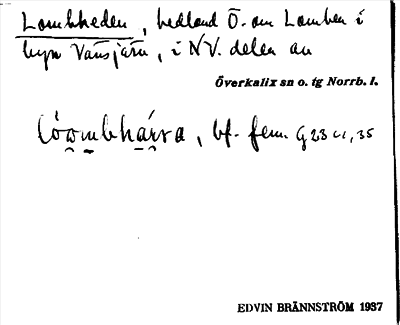 Lombheden, hedland Ö. om Lomben i
byn Vänsjärv, i NV. delen av
Överkalix sn o. tg Norrb. l.
bf. fem. G 23 c1, 35
EDVIN BRÄNNSTRÖM 1937